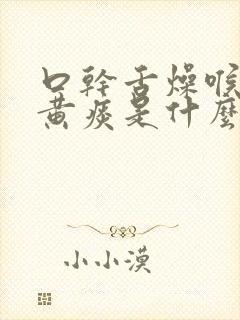 口幹舌燥喉
黃痰是什麼
小小漠